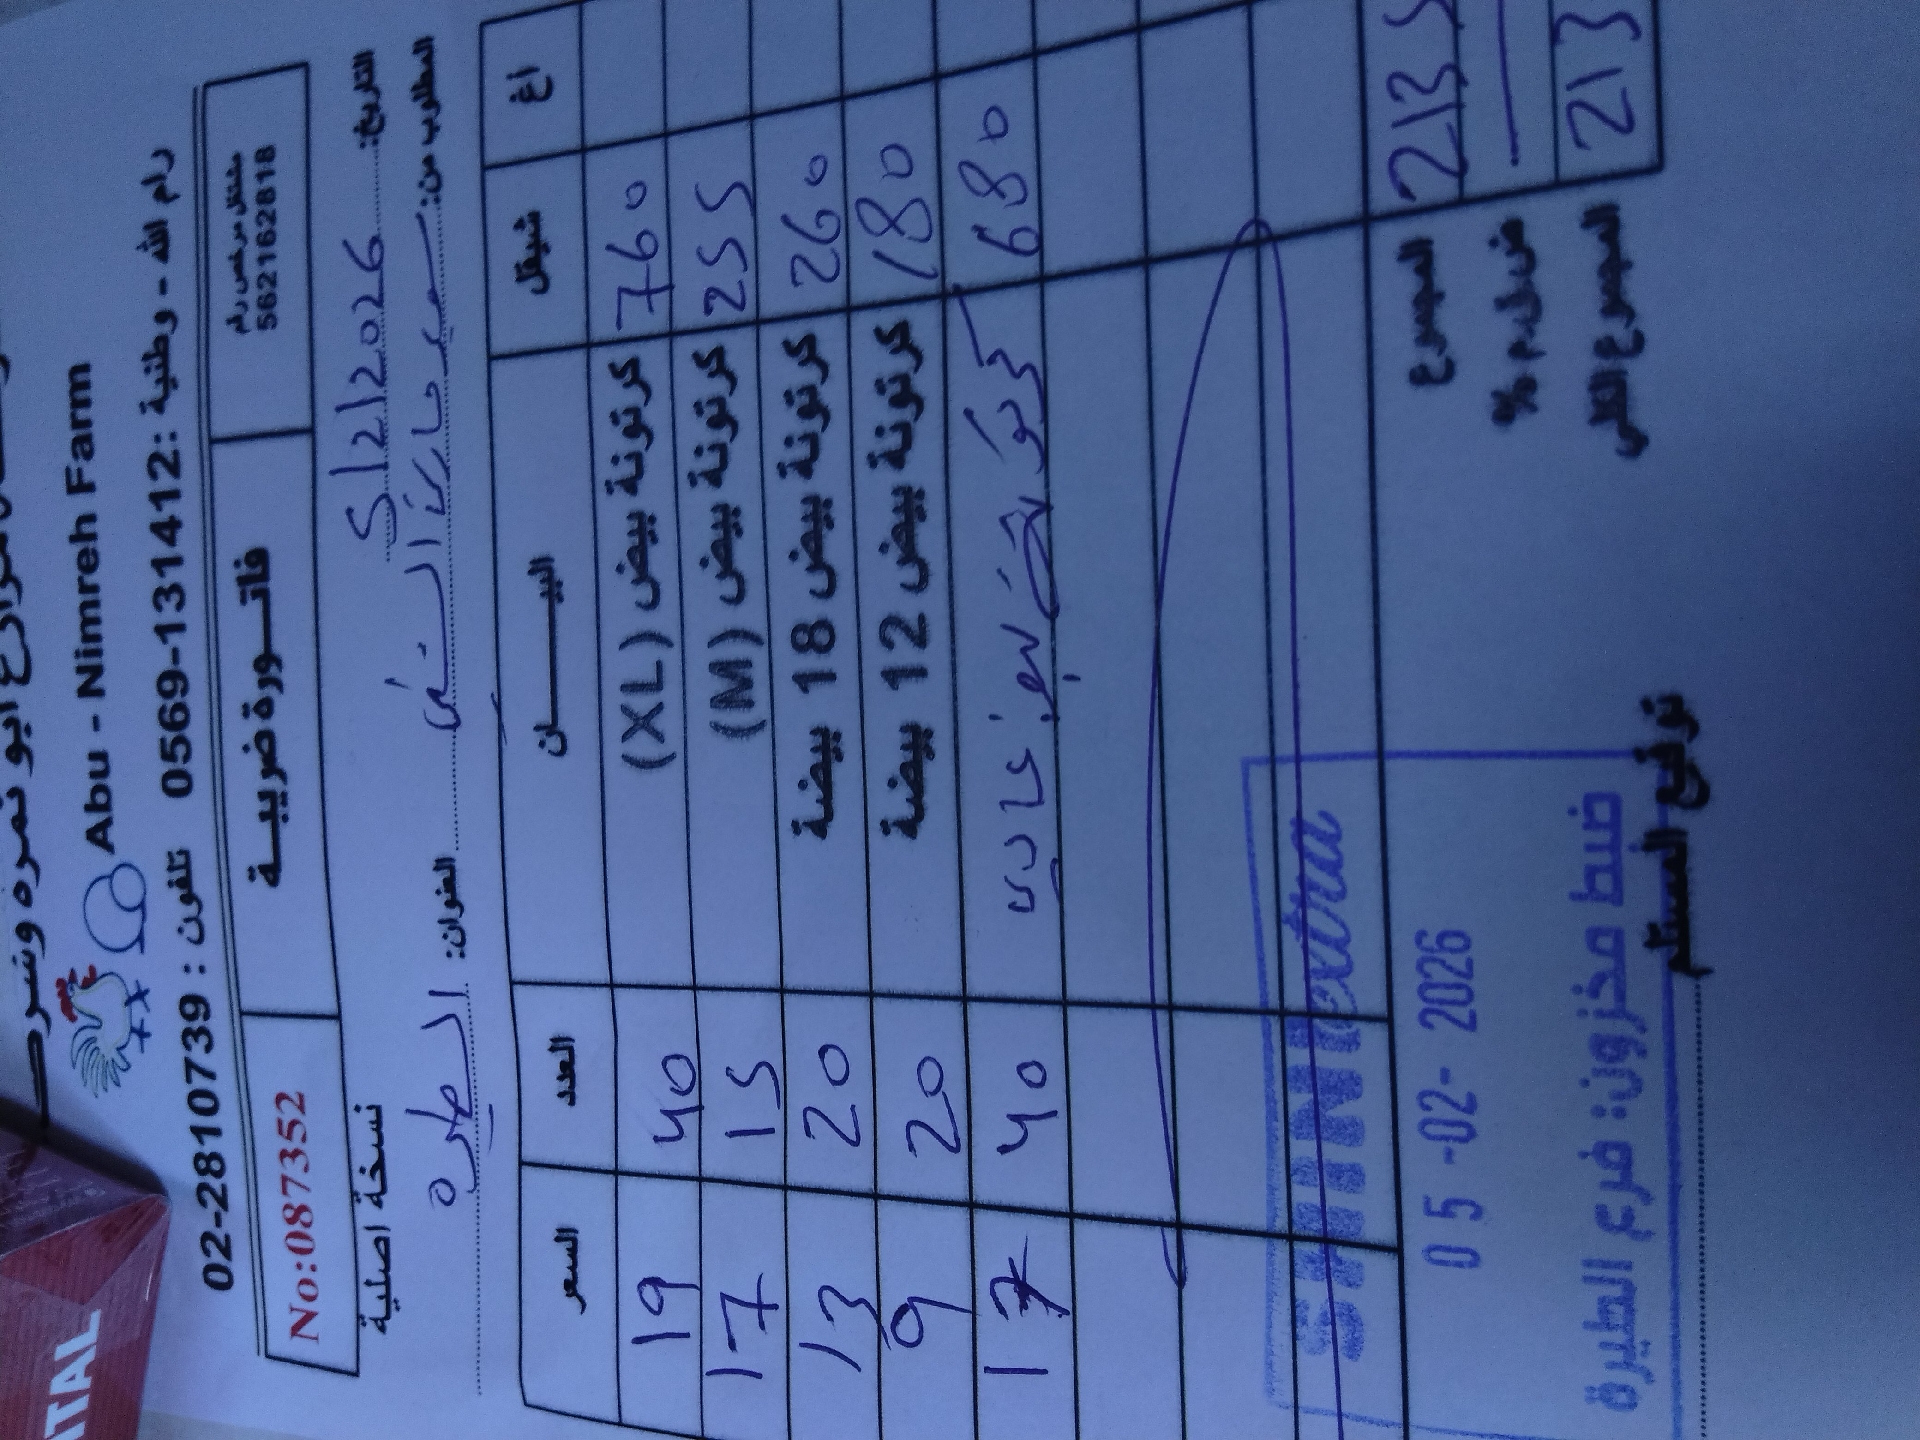 أبو نمره وشركاه
Abu - Nimreh Farm
رام الله - وطنية: 0569-131412 تلفون: 02-2810739
مشتغل مرخص رقم
562162818
فاتـــورة ضريبيـــة
No:087352
التاريخ: 5/2/2026
نسخة اصلية
المطلوب من:
العنوان: الطيره
اغ شيقل البيـــــــان العدد السعر
760 كرتونة بيض (XL) 40 19
255 كرتونة بيض (M) 15 17
260 كرتونة بيض 18 بيضة 20 13
180 كرتونة بيض 12 بيضة 20 9
680 40 17
المجموع 2135
ض.ق.م %
المجموع الكلي 213
extra
05-02-2026
ضبط مخزون: فرع الطيرة
توقيع المستلم
ITAL